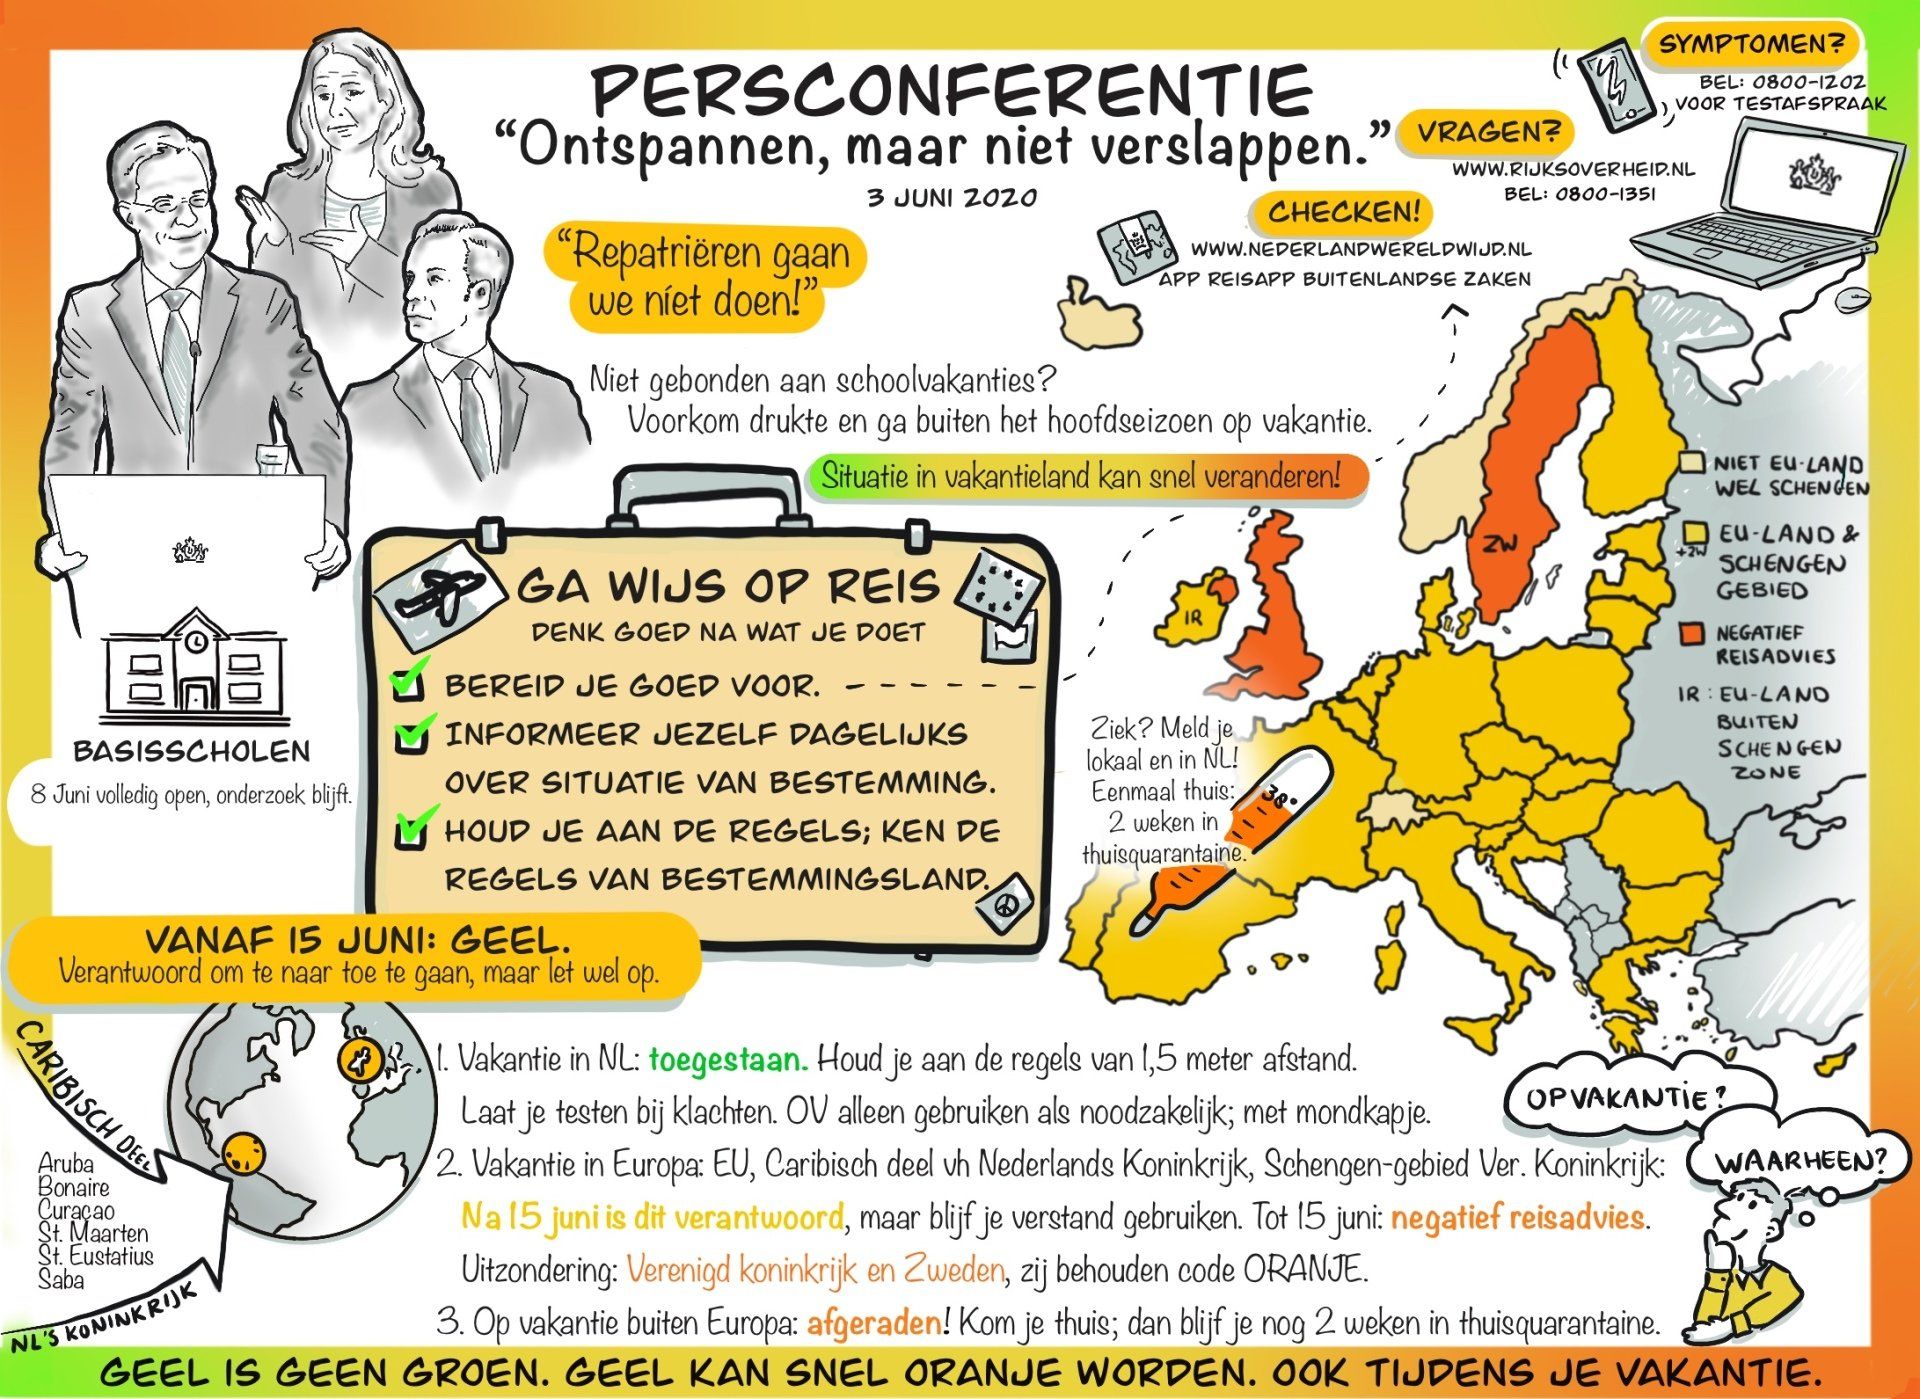 PERSCONFERENTIE
"Ontspannen, maar niet verslappen."
3 JUNI 2020
SYMPTOMEN?
BEL: 0800-1202
VOOR TESTAFSPRAAK
VRAGEN?
WWW.RIJKSOVERHEID.NL
BEL: 0800-1351
CHECKEN!
WWW.NEDERLANDWERELDWIJD.NL
APP REISAPP BUITENLANDSE ZAKEN
"Repatriëren gaan
we níet doen!"
Niet gebonden aan schoolvakanties?
Voorkom drukte en ga buiten het hoofdseizoen op vakantie.
Situatie in vakantieland kan snel veranderen!
GA WIJS OP REIS
DENK GOED NA WAT JE DOET
BEREID JE GOED VOOR.
INFORMEER JEZELF DAGELIJKS
OVER SITUATIE VAN BESTEMMING.
HOUD JE AAN DE REGELS; KEN DE
REGELS VAN BESTEMMINGSLAND.
BASISSCHOLEN
8 Juni volledig open, onderzoek blijft.
NIET EU-LAND
WEL SCHENGEN
+ZW
EU-LAND &
SCHENGEN
GEBIED
NEGATIEF
REISADVIES
IR: EU-LAND
BUITEN
SCHENGEN
ZONE
ZW
IR
Ziek? Meld je
lokaal en in NL!
Eenmaal thuis:
2 weken in
thuisquarantaine.
38°
VANAF 15 JUNI: GEEL.
Verantwoord om te naar toe te gaan, maar let wel op.
CARIBISCH DEEL
Aruba
Bonaire
Curaçao
St. Maarten
St. Eustatius
Saba
NL'S KONINKRIJK
1. Vakantie in NL: toegestaan. Houd je aan de regels van 1,5 meter afstand.
Laat je testen bij klachten. OV alleen gebruiken als noodzakelijk; met mondkapje.
2. Vakantie in Europa: EU, Caribisch deel vh Nederlands Koninkrijk, Schengen-gebied Ver. Koninkrijk:
Na 15 juni is dit verantwoord, maar blijf je verstand gebruiken. Tot 15 juni: negatief reisadvies.
Uitzondering: Verenigd koninkrijk en Zweden, zij behouden code ORANJE.
3. Op vakantie buiten Europa: afgeraden! Kom je thuis; dan blijf je nog 2 weken in thuisquarantaine.
OP VAKANTIE?
WAARHEEN?
GEEL IS GEEN GROEN. GEEL KAN SNEL ORANJE WORDEN. OOK TIJDENS JE VAKANTIE.